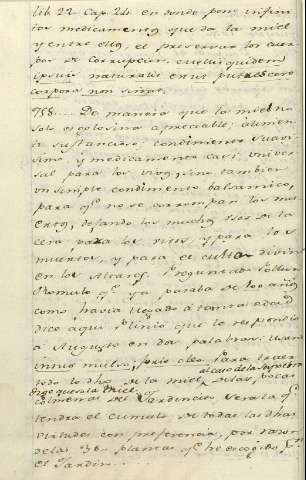 lib 22 Cap 24 en donde pone infini
tos medicamentos que da la miel
y entre ellos, el preservar los cuer
pos de corrupcion.
corpora non sinat.
758.... De manera que la miel no
solo es golosina apreciable; alimen
to sustancioso; condimento suavi
simo, y medicamento casi univer
sal para los vivos, sino tambien
un simple condimento balsamico,
para qe no se corrompan los mu
ertos, dejando los muchos usos de la
cera para los vivos, y para los
muertos, y para el culto divino
en los Altares. Preguntado Pollion
Romulo qe ya pasaba de 100 años
como havia llegado a tanta edad
dice aqui Plinio que le respondio
a Augusto en dos palabras:
intus mulso, foris oleo. Para
todo lo dho de la miel, de las pocas
colmenas de Jardines, vera qe
tendra el cumulo de todas las dhas
virtudes con preferencia, por razon
de las 36 plantas qe he escogido pa
el Jardin...